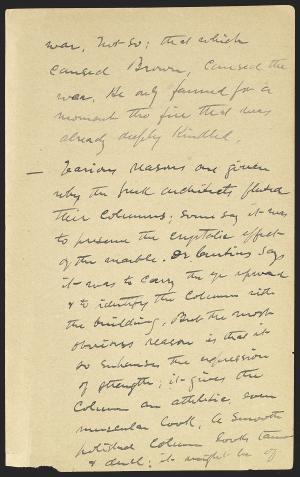 war. Not so; that which
caused Brown, caused the
war. He only fanned for a
moment the fire that was
already deeply kindled.
— Various reasons are given
why the Greek architects fluted
their columns; some say it was
to preserve the crystalic effect
of the marble. Dr Curtius says
it was to carry the eye upward
& to identify the column with
the building. But the most
obvious reason is that it
so enhances the expression
of strength; it gives the
column an athletic, even
muscular look. A smooth
polished column looks tame
& dull; it might be of